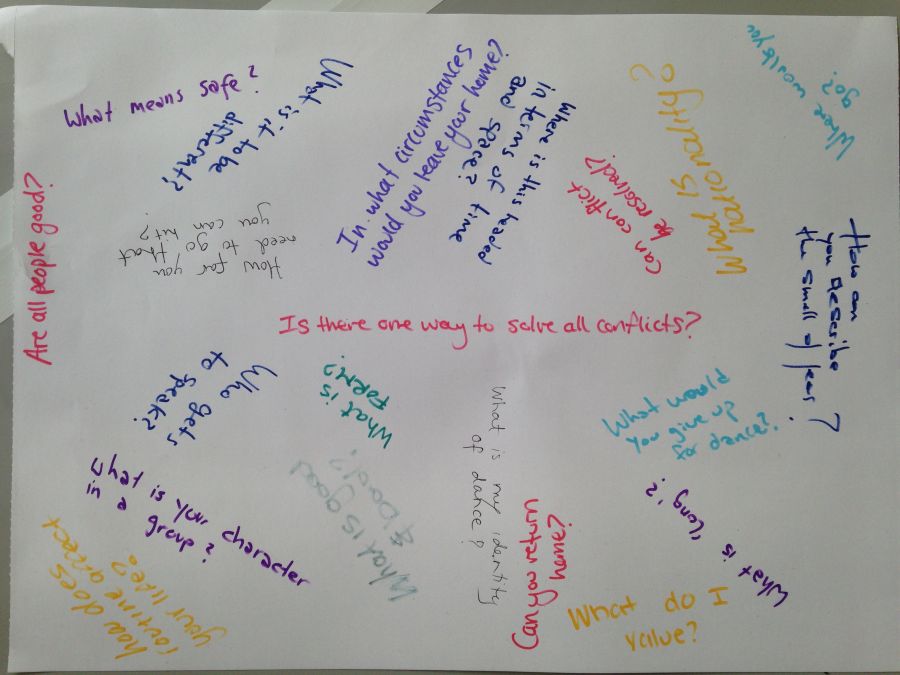 What means safe?
What is it to be
different?
In what circumstances
would you leave your home?
Where is this headed
in terms of time
and space?
Can conflict
be resolved?
What is
nationality?
Where would you
go?
Are all people good?
How far you
need to go that
you can hit?
How can
you describe
the smell of fear?
Is there one way to solve all conflicts?
Who gets
to speak?
What is
FORM?
What is my identity
of dance?
What would
you give up
for dance?
What is your character
in a group?
What is good
& bad?
What is 'long'?
how does
routine affect
your life?
Can you return
home?
What do I
value?